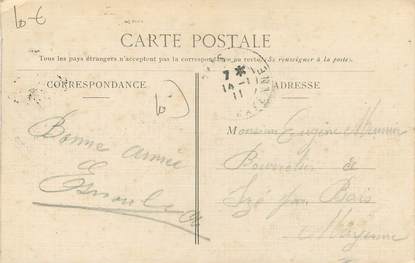 6-€
CARTE POSTALE
Tous les pays étrangers n'acceptent pas la correspondance au recto. (Se renseigner à la poste).
7 *
14-1
11
CORRESPONDANCE
ADRESSE
Bonne année
Monsieur Eugène
à
Izé par Bais
Mayenne